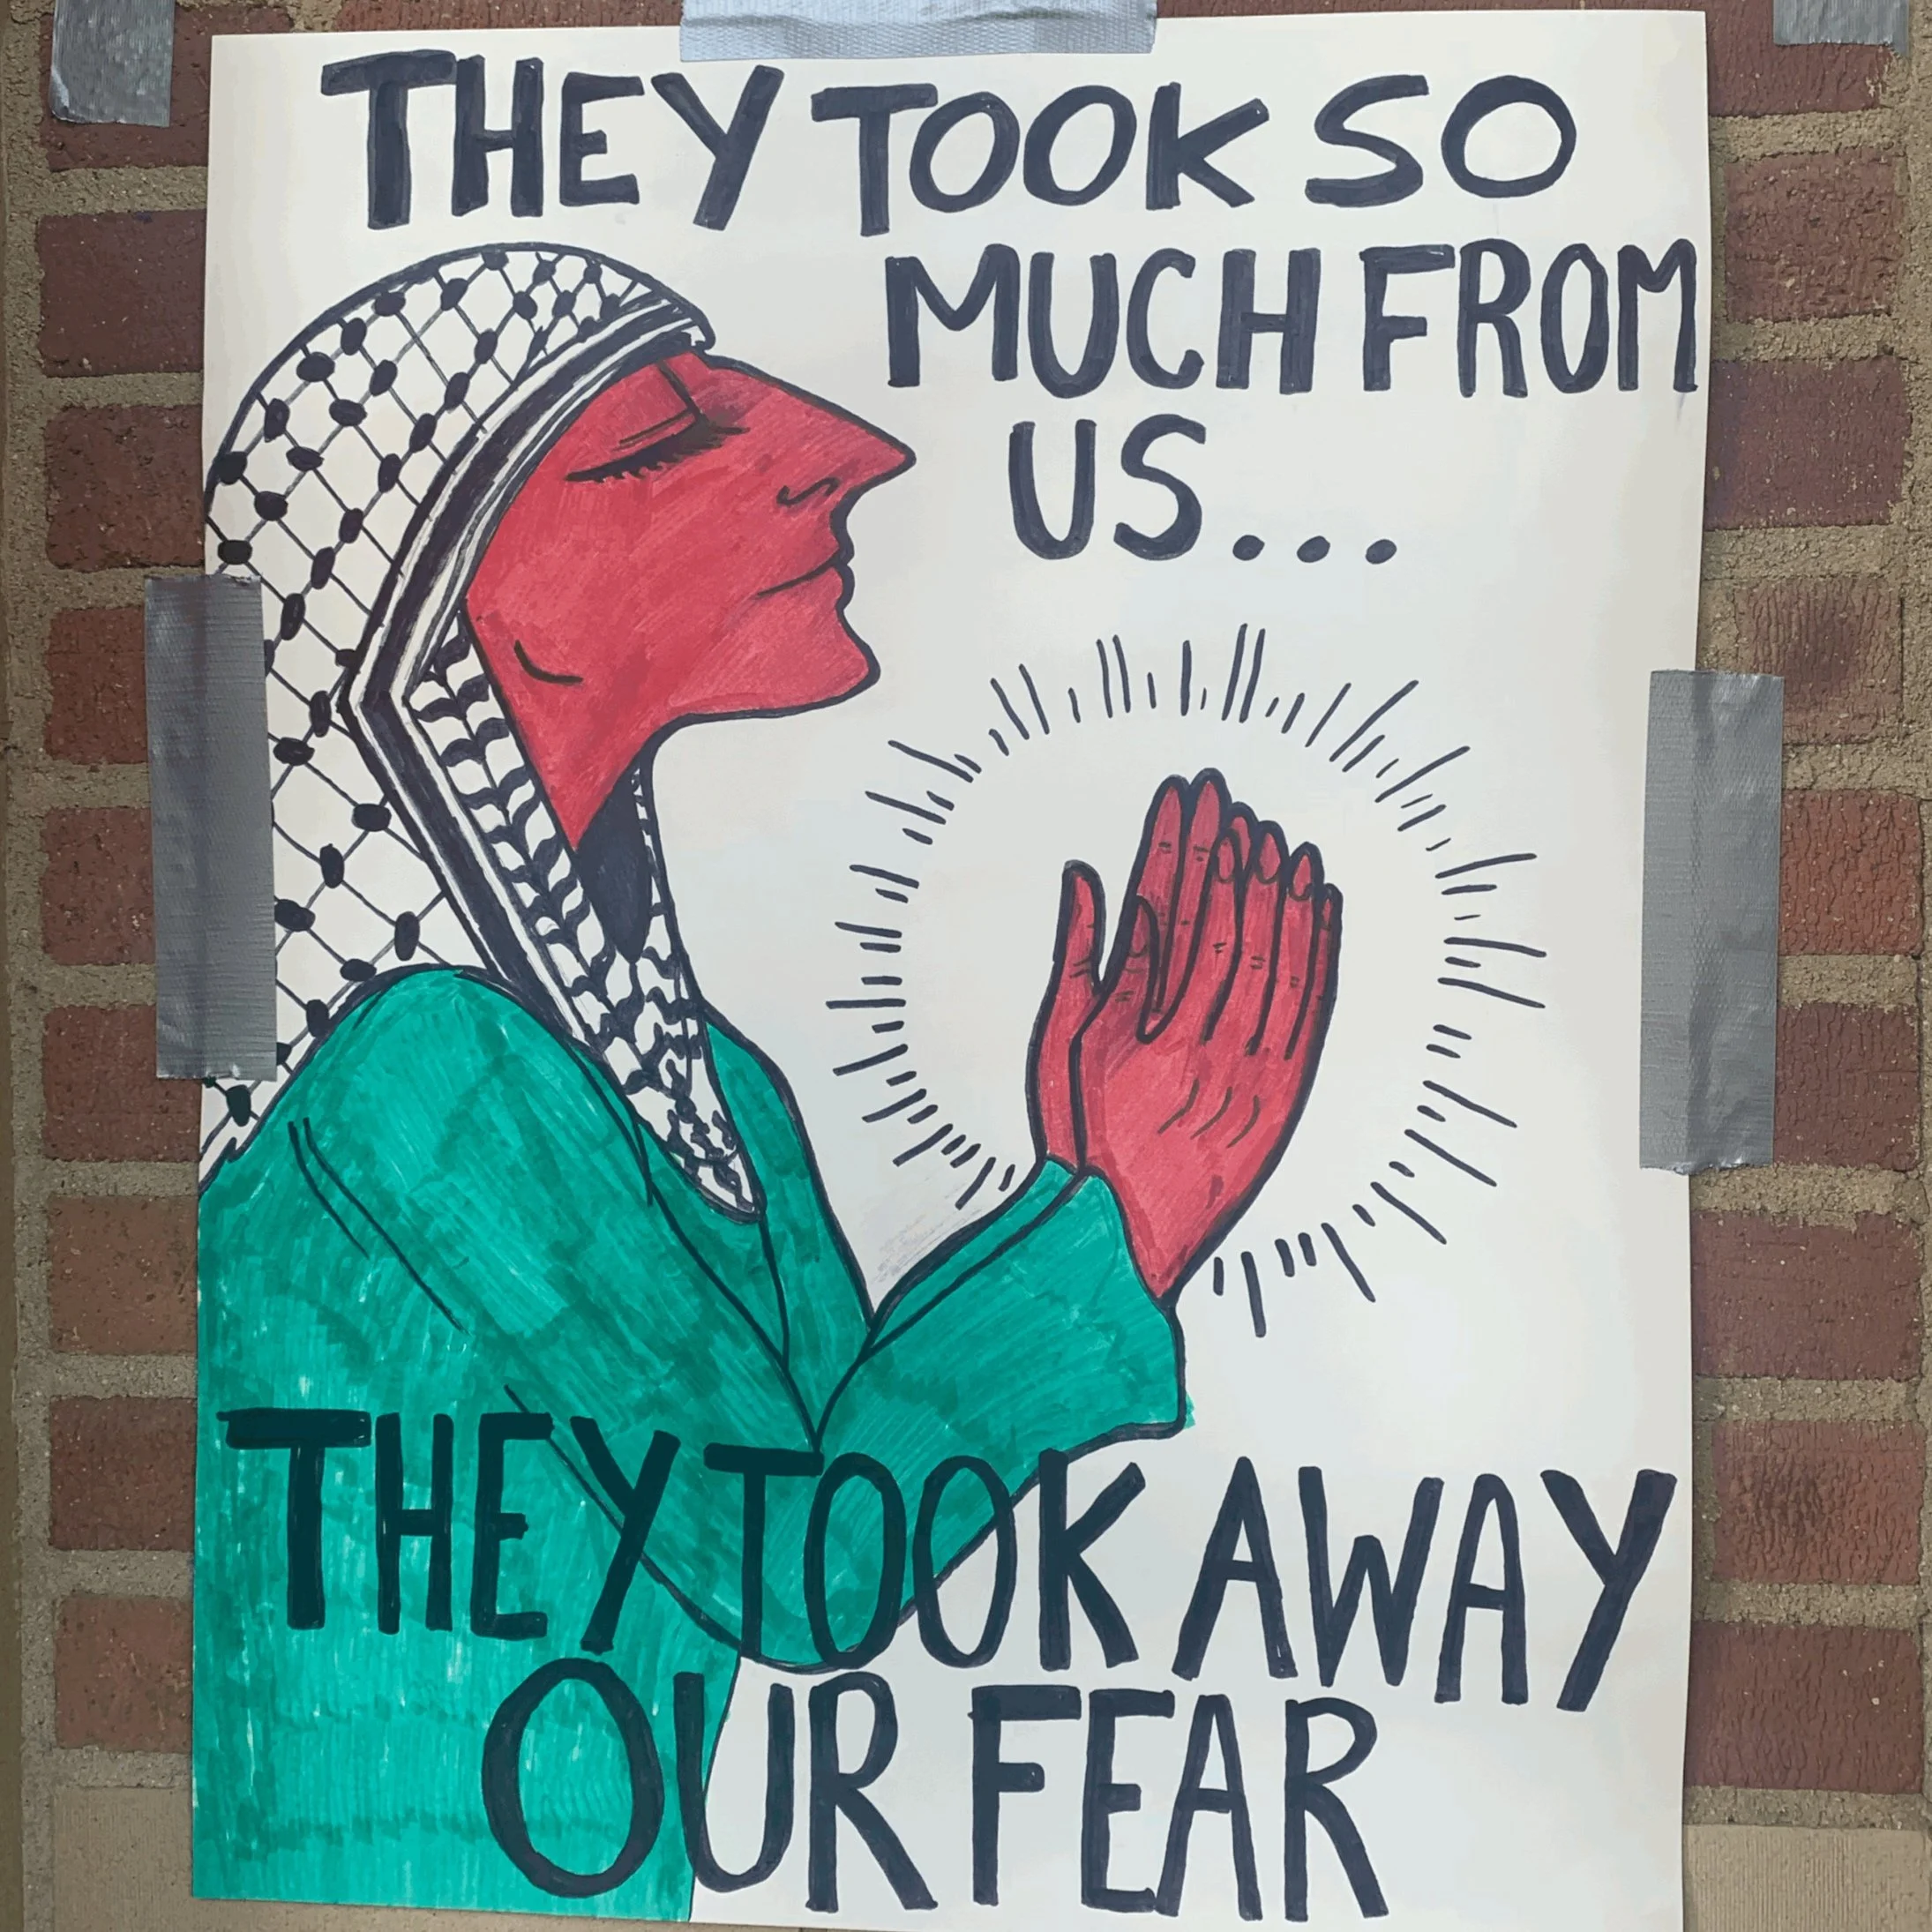 THEY TOOK SO
MUCH FROM
US...
THEY TOOK AWAY
OUR FEAR